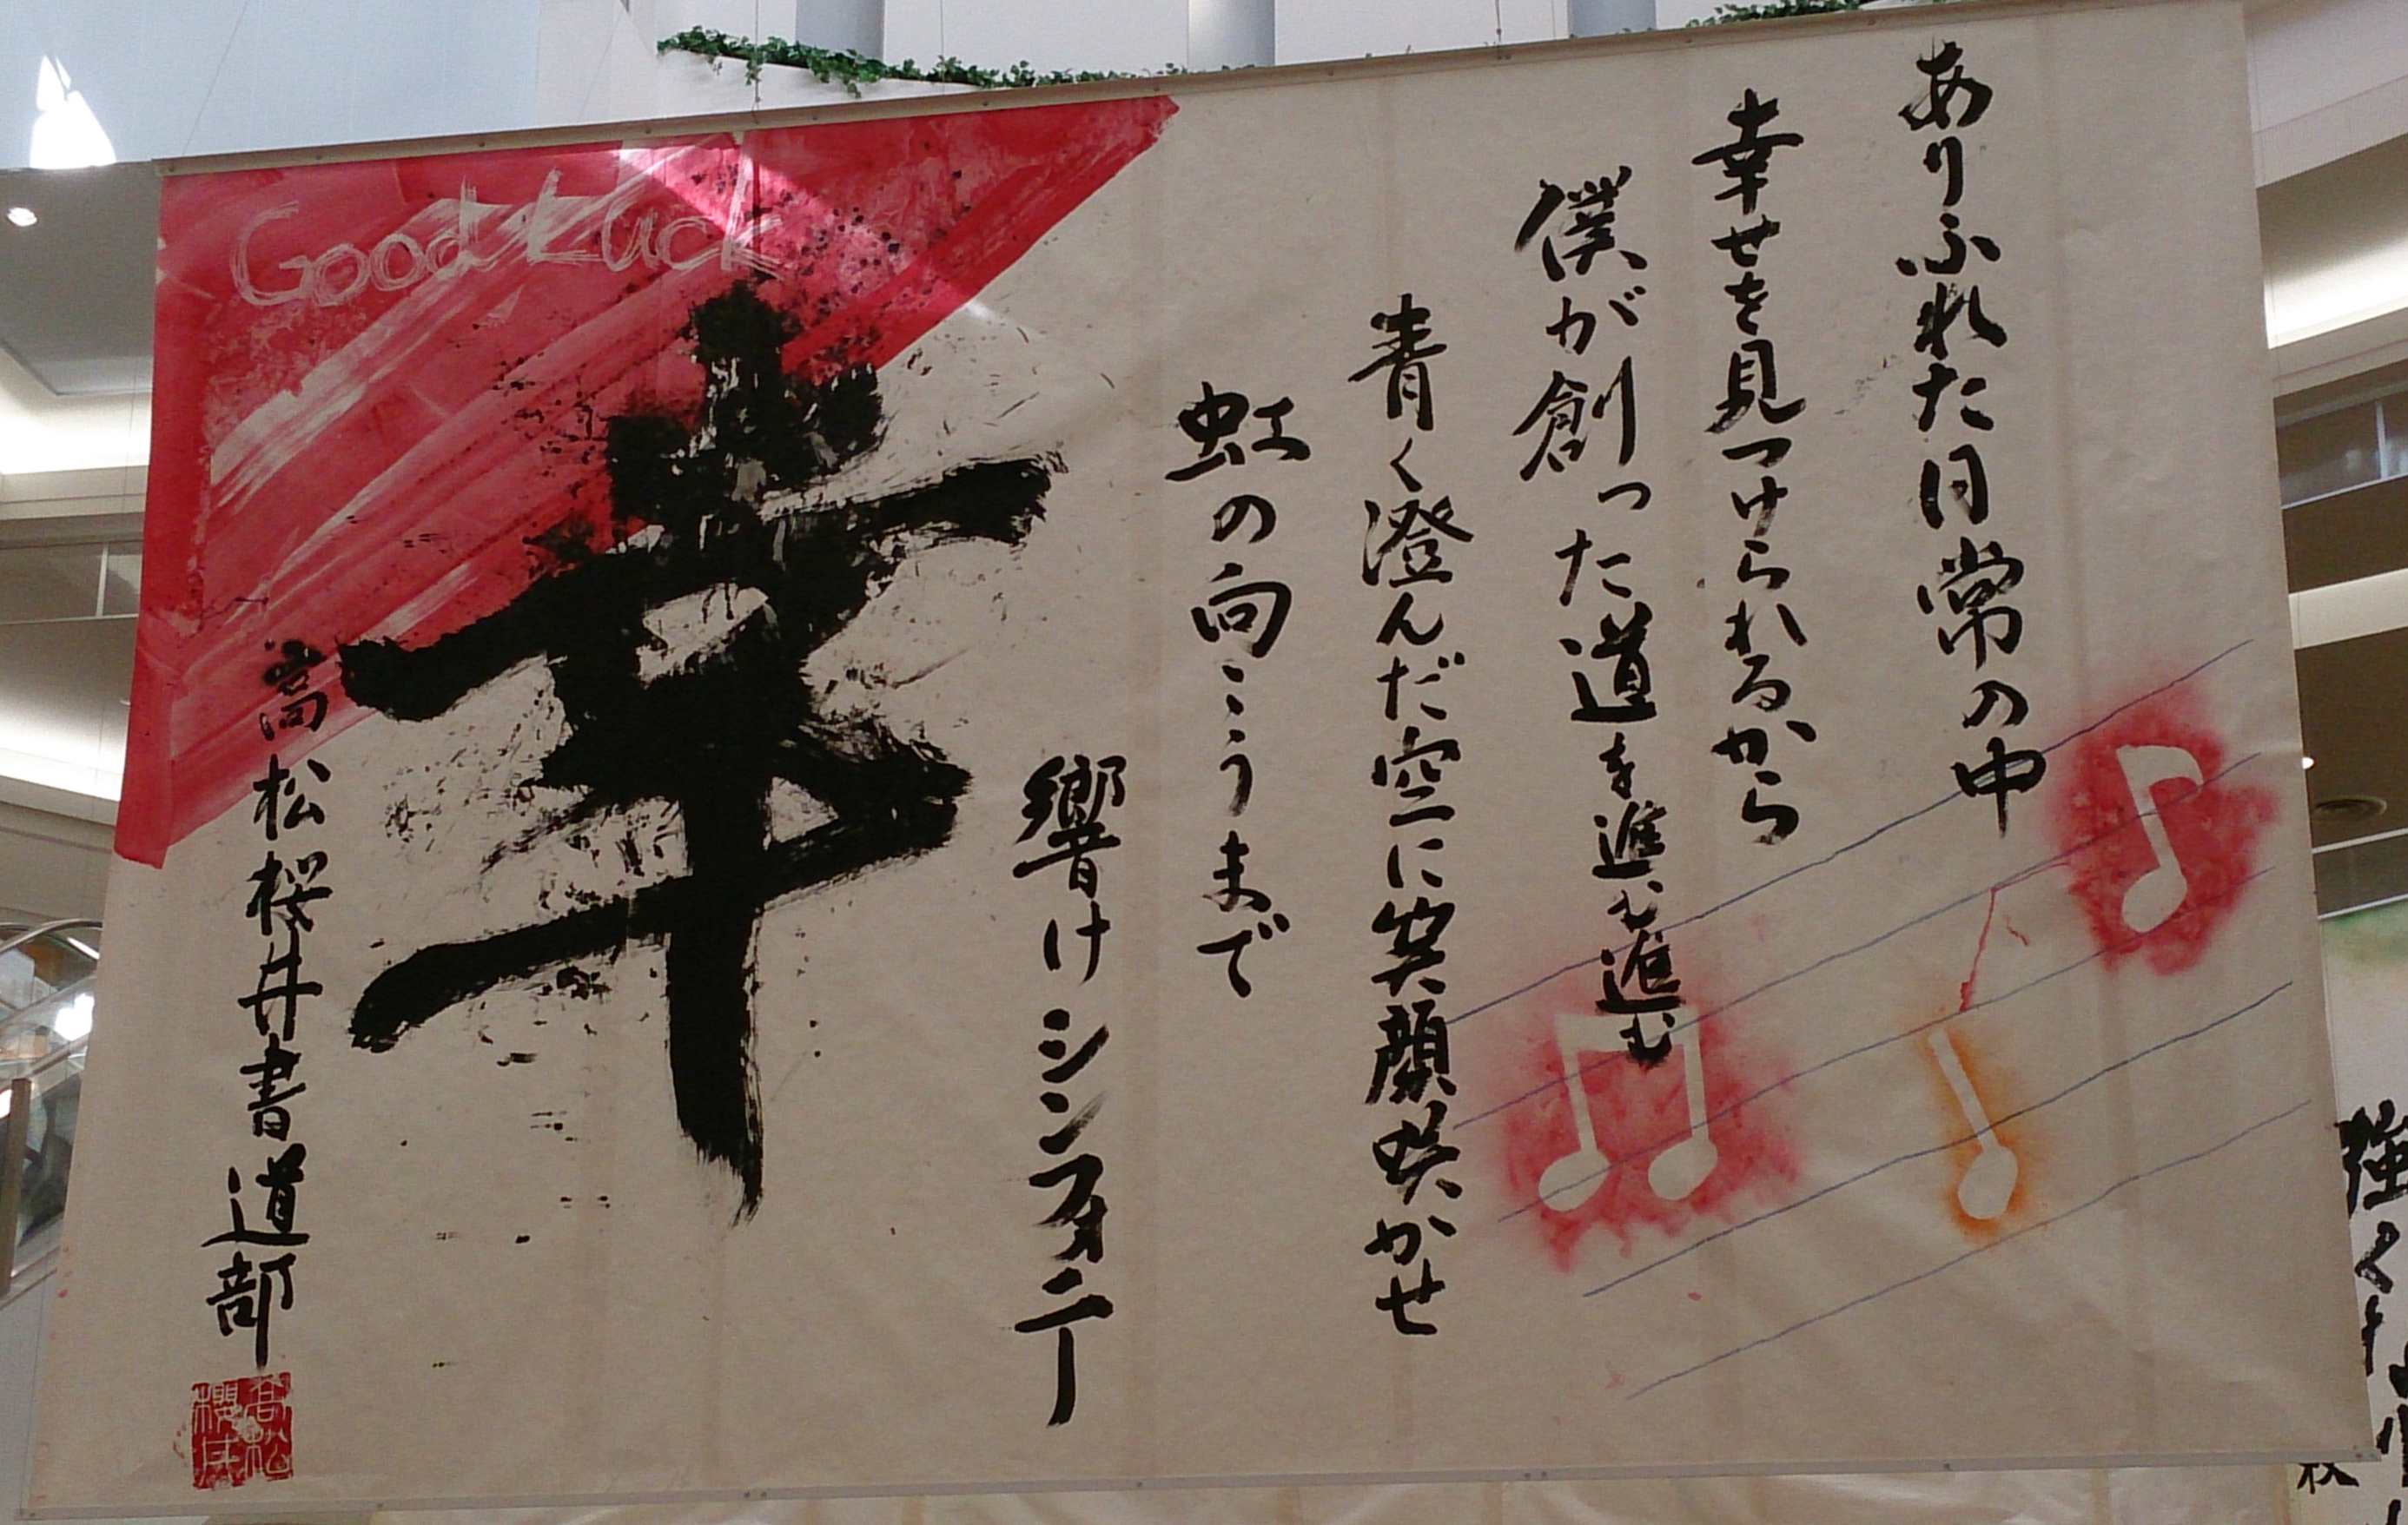 ありふれた日常の中
幸せを見つけられるから
僕が創った道を進む進む
青く澄んだ空に笑顔咲かせ
虹の向こうまで
響けシンフォニー
Good Luck
幸
高松桜井書道部
高松
櫻井
強く